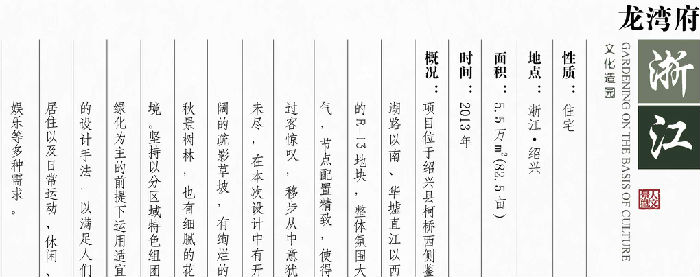 龙湾府
浙江
GARDENING ON THE BASIS OF CULTURE
文化造园
性质：住宅
地点：浙江·绍兴
面积：5.5万m²(82.5亩)
时间：2013年
概况：项目位于绍兴县柯桥西侧鉴
湖路以南、华墟直江以西
的R-13地块，整体氛围大
气，节点配置精致，使得
过客惊叹，移步从中意犹
未尽，在本次设计中有开
阔的疏影草坡，有绚烂的
秋景树林，也有细腻的花
境。坚持以分区域特色组团
绿化为主的前提下运用适宜
的设计手法，以满足人们
居住以及日常运动、休闲、
娱乐等多种需求。